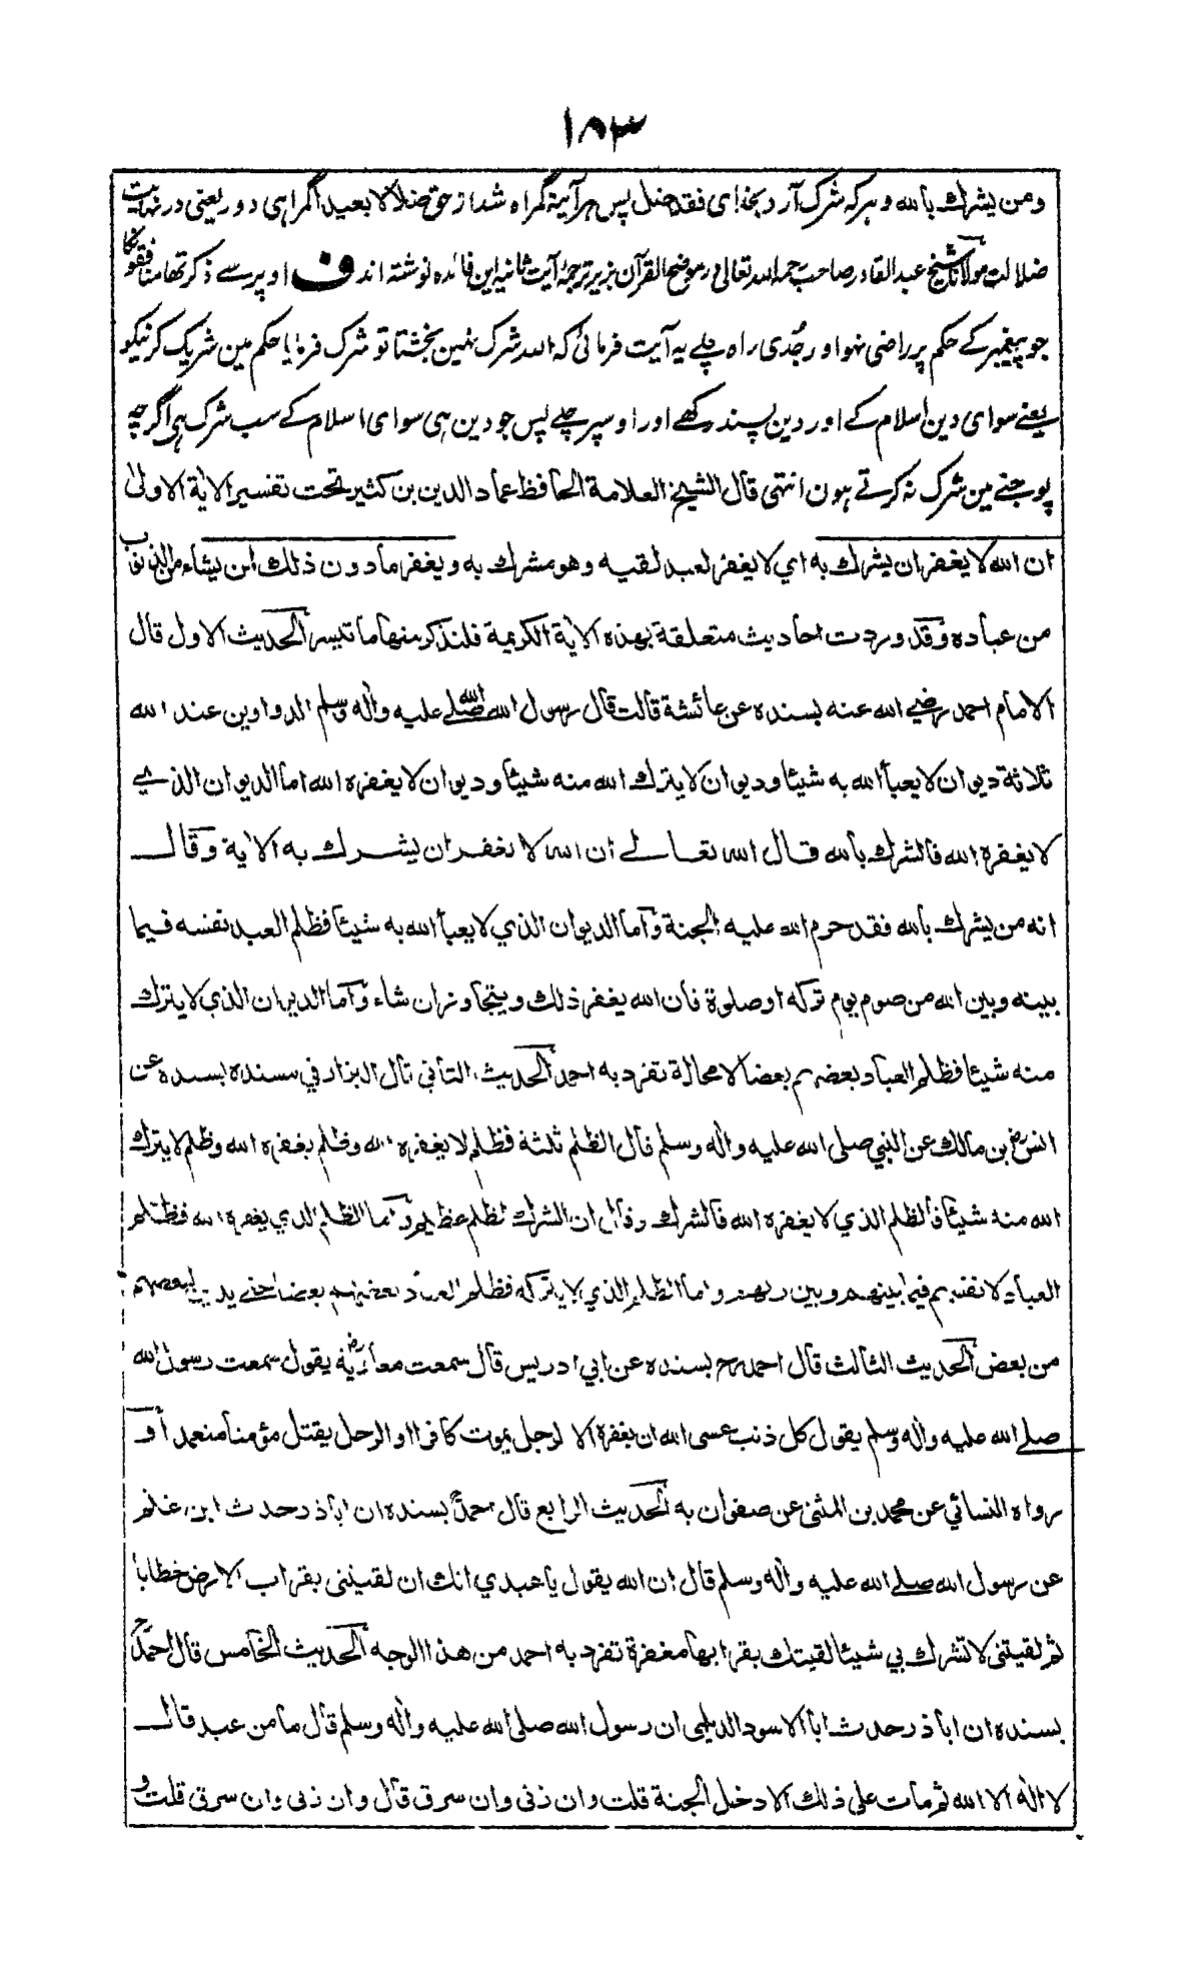 ١٨٣
ومن یشرك بالله و هر که شرک آرد بخدای فقد ضل پس هر آیینه گمراه شد از حق ضلالا بعیدا گمراهی دور یعنی در نهایت
ضلالت مولانا شیخ عبدالقادر صاحب رحمه الله تعالی در موضح القرآن بزیر ترجمۀ آیت ثانیه این فائده نوشته اند ف اوپر سے ذکر تھا منافقونکا
جو پیغمبر کے حکم پر راضی نہو اور جُدی راہ چلے یہ آیت فرمائی کہ اللہ شرک نہین بخشتا تو شرک فرمایا حکم مین شریک کرنیکو
یعنے سوای دین اسلام کے اور دین پسند رکھے اور اوسپر چلے پس جو دین ہی سوای اسلام کے سب شرک ہی اگرچہ
پوجنے مین شرک نہ کرتے ہون انتہی قال الشيخ العلامة الحافظ عماد الدين بن كثير تحت تفسير الاية الاولى
ان الله لا يغفر ان يشرك به اي لا يغفر لعبد لقيه وهو مشرك به ويغفر مادون ذلك لمن يشاء من الذنوب
من عباده وقد وردت احاديث متعلقة بهذه الاية الكريمة فلنذكر منها ما تيسر الحديث الاول قال
الامام احمد رضي الله عنه بسنده عن عائشة قالت قال رسول الله صلى الله عليه واله وسلم الدواوين عند الله
ثلاثة ديوان لا يعبأ الله به شيئا وديوان لا يترك الله منه شيئا وديوان لا يغفره الله اما الديوان الذي
لا يغفره الله فالشرك بالله قال الله تعالى ان الله لا يغفر ان يشرك به الاية وقال
انه من يشرك بالله فقد حرم الله عليه الجنة وأما الديوان الذي لا يعبأ الله به شيئا فظلم العبد نفسه فيما
بينه وبين الله من صوم يوم تركه او صلوة فان الله يغفر ذلك ويتجاوز ان شاء وأما الديوان الذي لا يترك
منه شيئا فظلم العباد بعضهم بعضا لا محالة تفرد به احمد الحديث الثاني قال البزار في مسنده بسنده عن
انس رض بن مالك عن النبي صلى الله عليه واله وسلم قال الظلم ثلثة فظلم لا يغفره الله وظلم يغفره الله وظلم لا يترك
الله منه شيئا فالظلم الذي لا يغفره الله فالشرك وقال ان الشرك لظلم عظيم وأما الظلم الذي يغفره الله فظلم
العباد لانفسهم فيما بينهم وبين ربهم واما الظلم الذي لا يتركه فظلم العباد بعضهم بعضا حتى يدين لبعضهم
من بعض الحديث الثالث قال احمد رح بسنده عن ابي ادريس قال سمعت معاوية رض يقول سمعت رسول الله
صلى الله عليه واله وسلم يقول كل ذنب عسى الله ان يغفره الا لرجل يموت كافرا او الرجل يقتل مؤمنا متعمدا و
رواه النسائي عن محمد بن المثنى عن صفوان به الحديث الرابع قال احمد بسنده ان اباذر حدث ابن غنم
عن رسول الله صلى الله عليه واله وسلم قال ان الله يقول يا عبدي انك ان لقيتنى بقراب الارض خطايا
ثم لقيتنى لا تشرك بي شيئا لقيتك بقرابها مغفرة تفرد به احمد من هذا الوجه الحديث الخامس قال احمد رح
بسنده ان اباذر حدث ابا الاسود الديلي ان رسول الله صلى الله عليه واله وسلم قال ما من عبد قال
لا اله الا الله ثم مات على ذلك الا دخل الجنة قلت وان زنى وان سرق قال وان زنى وان سرق قلت و